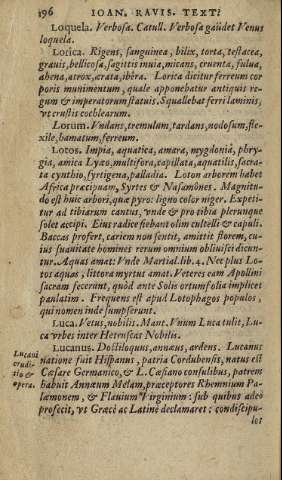 196 IOAN. RAVIS. TEXT:
Loquela. Verbosa. Catull. Verbosa gaudet Venus
loquela.
Lorica. Rigens, sanguinea, bilix, torta, testacea,
grauis, bellicosa, sagittis inuia, micans, cruenta, fulua,
ahena, atrox, ærata, ibêra. Lorica dicitur ferreum cor
poris munimentum, quale apponebatur antiquis re-
gum & imperatorum statuis. Squallebat ferri laminis,
vt crustis cochlearum.
Lorum. Vndans, tremulum, tardans, nodosum, fle-
xile, hamatum, ferreum.
Lotos. Impia, aquatica, amara, mygdoniâ, phry-
gia, amica Lyæo, multifora, capillata, aquatilis, sacra-
ta cynthio, syrtigena, palladia. Loton arborem habet
Africa præcipuam, Syrtes & Nasamônes. Magnitu-
do est huic arbori, quæ pyro: ligno color niger. Expeti-
tur ad tibiarum cantus, vnde & pro tibia plerunque
solet accipi. Eius radice fiebant olim cultelli & capuli.
Baccas profert, cariem non sentit, amittit florem, cu-
ius suauitate homines rerum omnium obliuisci dicun-
tur. Aquas amat: Vnde Martial. lib. 4. Nec plus Lo-
tos aquas, littora myrtus amat. Veteres eam Apollini
sacram fecerunt, quòd ante Solis ortum folia implicet
paulatim. Frequens est apud Lotophagos populos,
qui nomen inde sumpserunt.
Luca. Vetus, nobilis. Mant. Vnum Luca tulit, Lu-
ca vrbes inter Hetruscas Nobilis.
Lucanus. Doctiloquus, annæus, ardens. Lucanus
Lucani erudi-tio & opera.
natione fuit Hispanus, patria Cordubensis, natus est
Cæsare Germanico, & L. Cæsiano consulibus, patrem
habuit Annæum Melam, præceptores Rhemnium Pa-
læmonem, & Flauium Virginium: sub quibus adeo
profecit, vt Græcè ac Latinè declamaret; condiscipu-
los